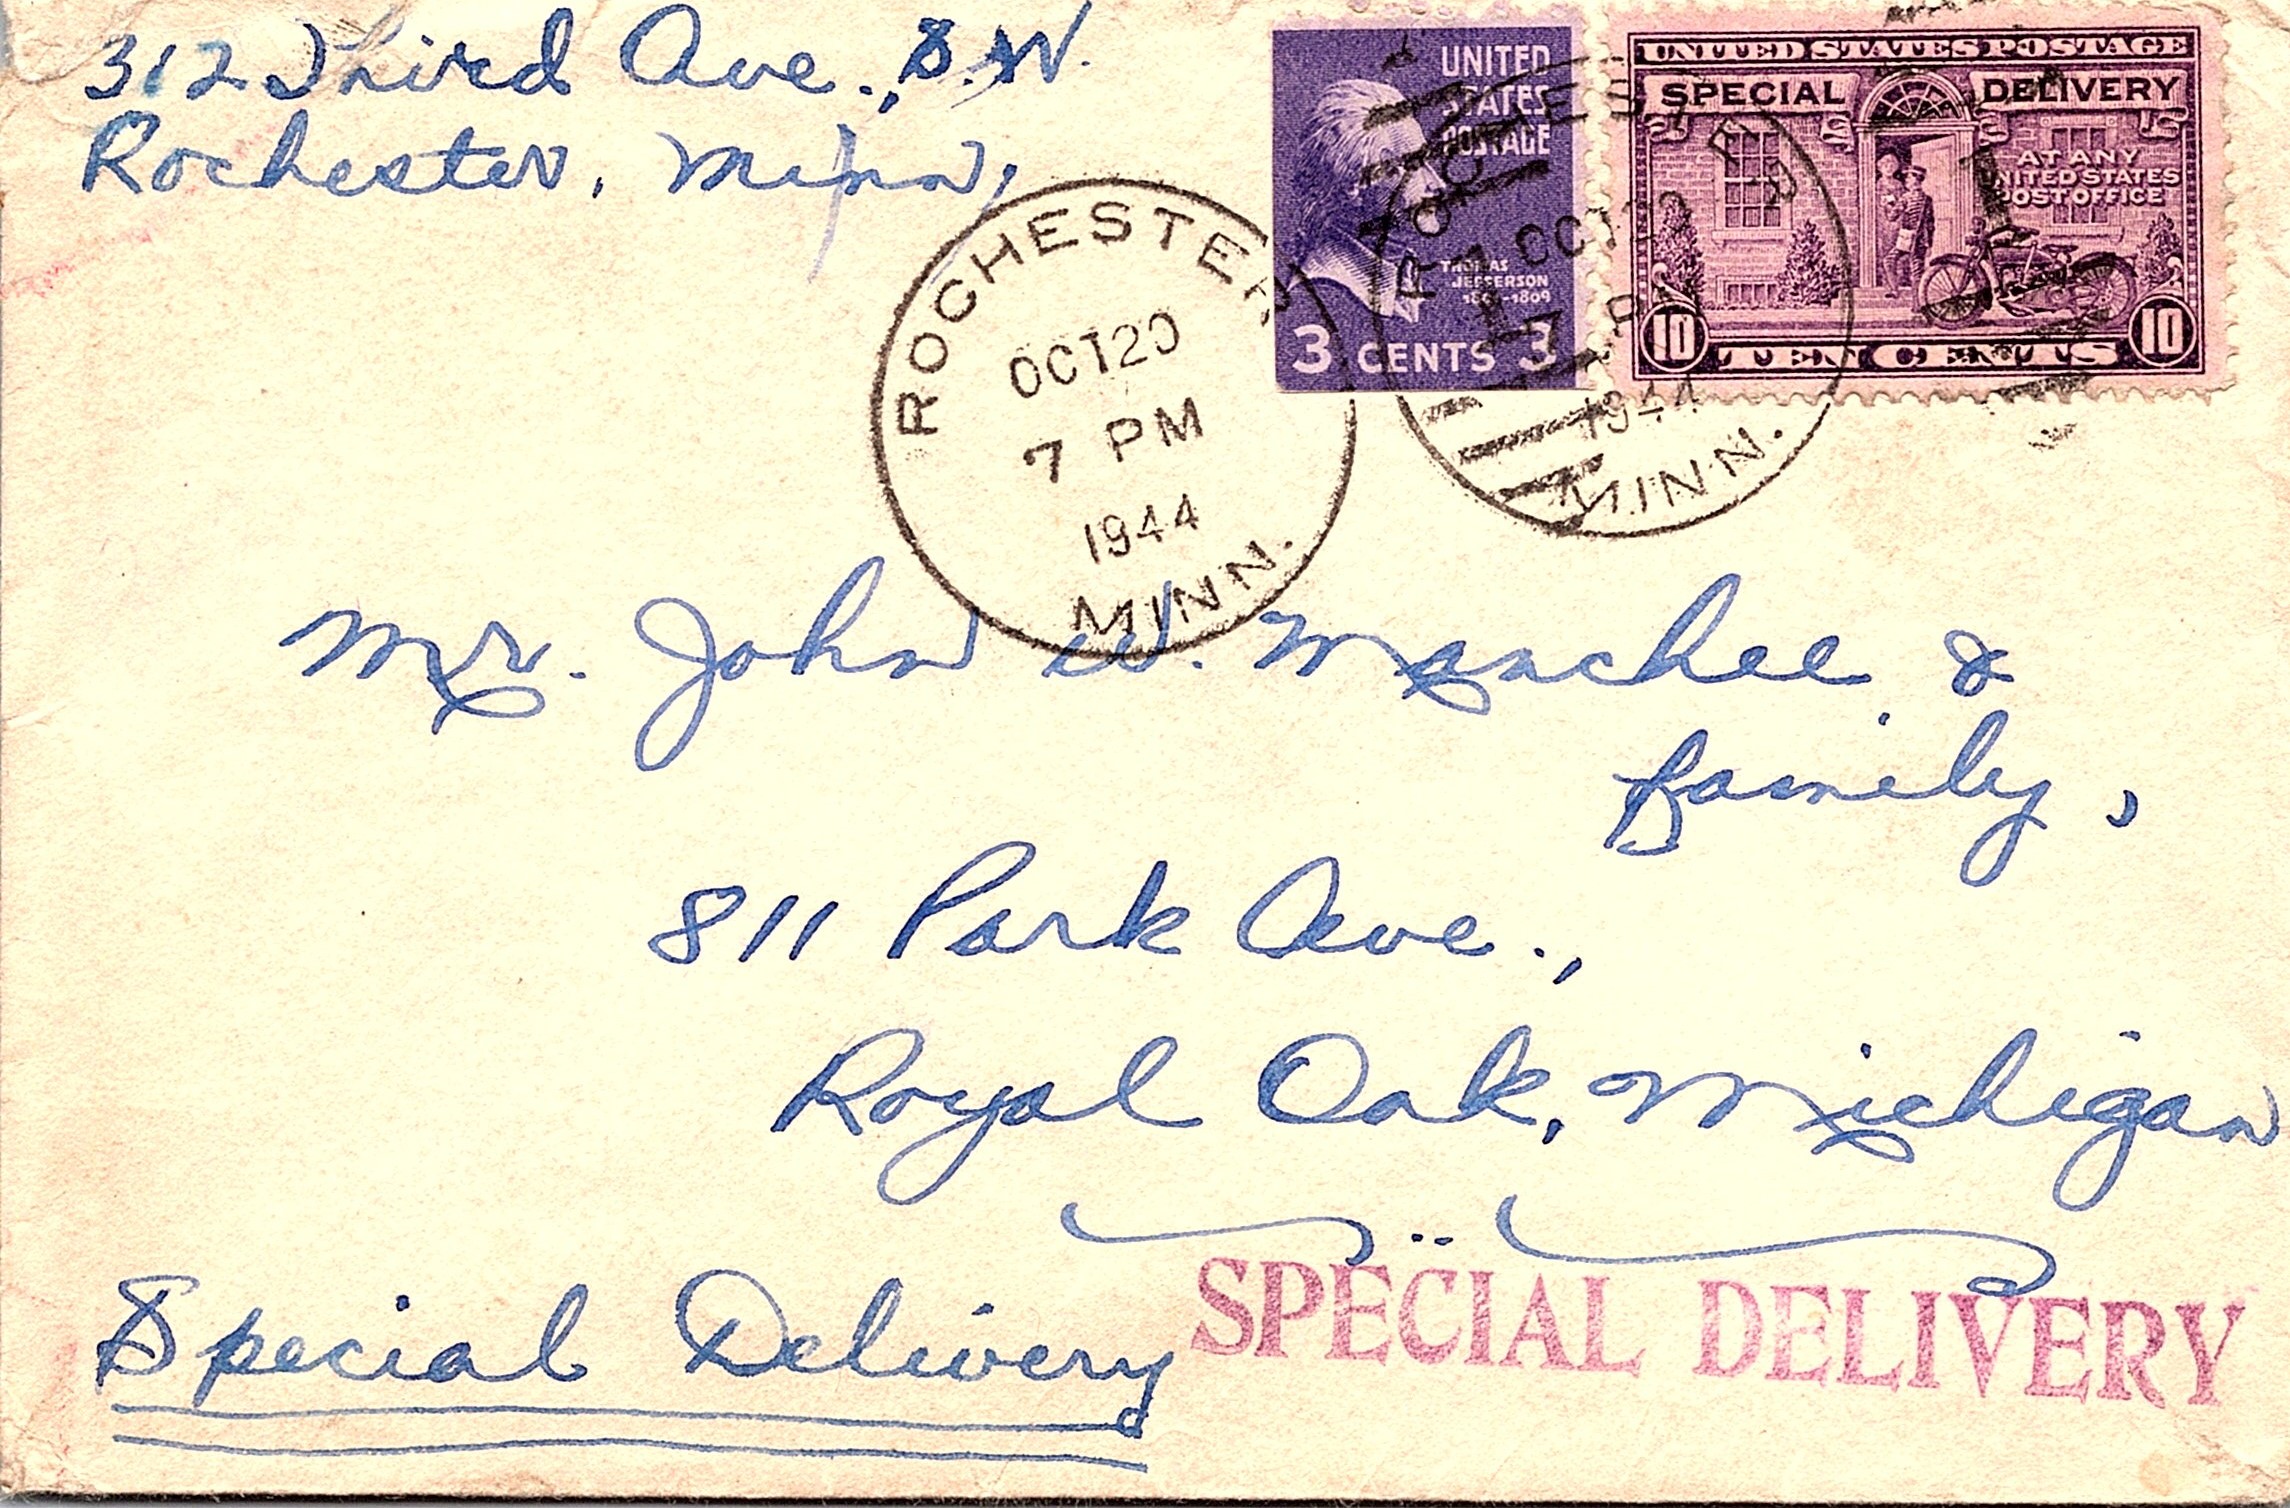 312 Third Ave., S.W.
Rochester, Minn,
UNITED
STATES
POSTAGE
THOMAS
JEFFERSON
1801-1809
3 CENTS 3
UNITED STATES POSTAGE
SPECIAL DELIVERY
AT ANY
UNITED STATES
POST OFFICE
10 TEN CENTS 10
ROCHESTER
OCT 20
7 PM
1944
MINN.
ROCHESTER
OCT 20
7 PM
1944
MINN.
Mr. John W. Manchee &
family,
811 Park Ave.,
Royal Oak, Michigan
Special Delivery
SPECIAL DELIVERY